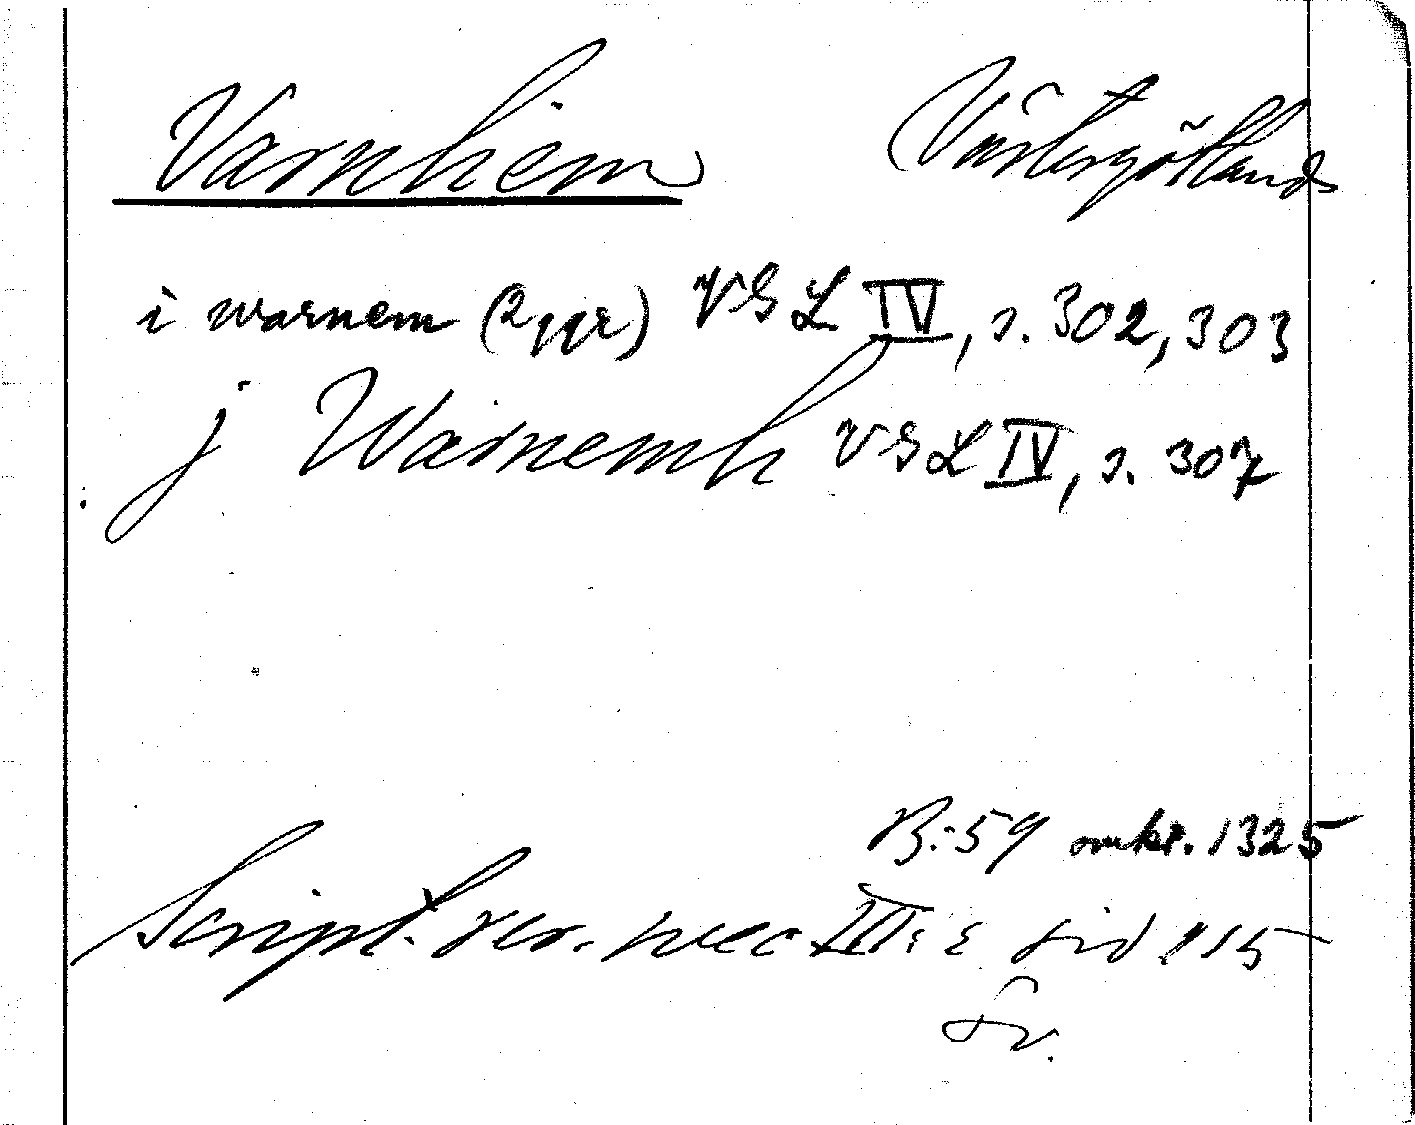 Varnhem Västergötland
i warnem (2 ggr) VGL IV, s. 302, 303
j Warnemh VGL IV, s. 307
B:59 omkr. 1325
Script. rer. svec III: s sid 115
Sv.